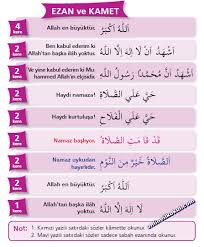 EZAN ve KAMET
4 kere Allah en büyüktür. اَللّٰهُ اَكْبَرُ
2 kere Ben kabul ederim ki Allah'tan başka ilâh yoktur. اَشْهَدُ اَنْ لَا اِلٰهَ اِلَّا اللّٰهُ
2 kere Ve yine kabul ederim ki Muhammed Allah'ın elçisidir. اَشْهَدُ اَنَّ مُحَمَّدًا رَسُولُ اللّٰهِ
2 kere Haydi namaza! حَيَّ عَلَى الصَّلَاةِ
2 kere Haydi kurtuluşa! حَيَّ عَلَى الْفَلَاحِ
2 kere Namaz başlıyor. قَدْ قَامَتِ الصَّلَاةُ
2 kere Namaz uykudan hayırlıdır. اَلصَّلَاةُ خَيْرٌ مِنَ النَّوْمِ
2 kere Allah en büyüktür. اَللّٰهُ اَكْبَرُ
1 kere Allah'tan başka ilâh yoktur. لَا اِلٰهَ اِلَّا اللّٰهُ
Not: 1. Kırmızı yazılı satırdaki sözler kâmette okunur.
2. Mavi yazılı satırdaki sözler sadece sabah ezanında okunur.